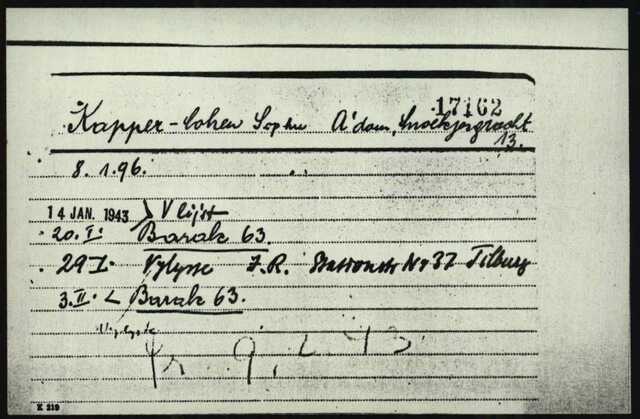 17162
Kapper-Cohen Sophie A'dam, Snoekjesgracht
13.
8.1.96.
14 JAN. 1943 Vlijst
20.I. Barak 63.
29 I. J.R. Stationstr Nr 37 Tilburg
3.II. < Barak 63.
9.2.43
K 219